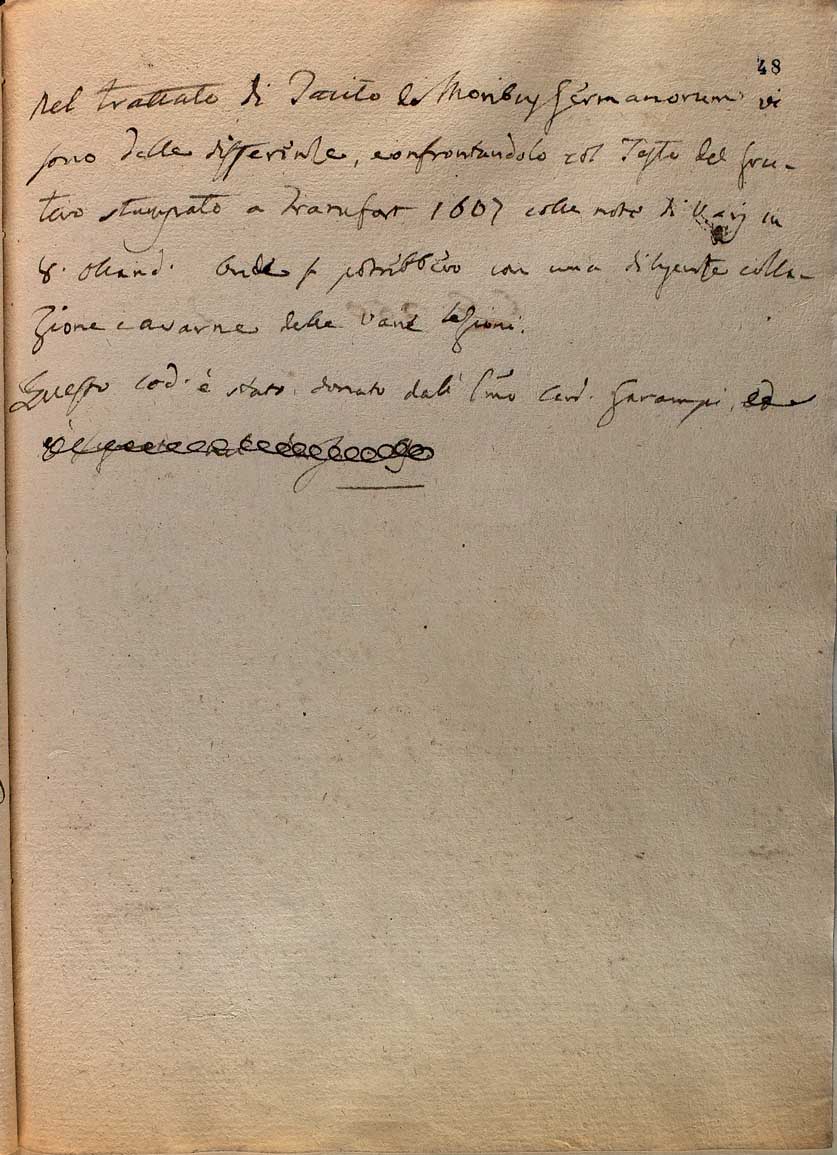 48
nel trattato di Tacito de Moribus Germanorum vi
sono delle differenze, confrontandolo col Testo del Gru-
tero stampato a Francfort 1607 colle note di Varj in
8. Onde si potrebbero con una diligente colla-
zione cavarne delle varie lezioni.
Questo cod. è stato donato dall' Emo Card. Garampi, ed